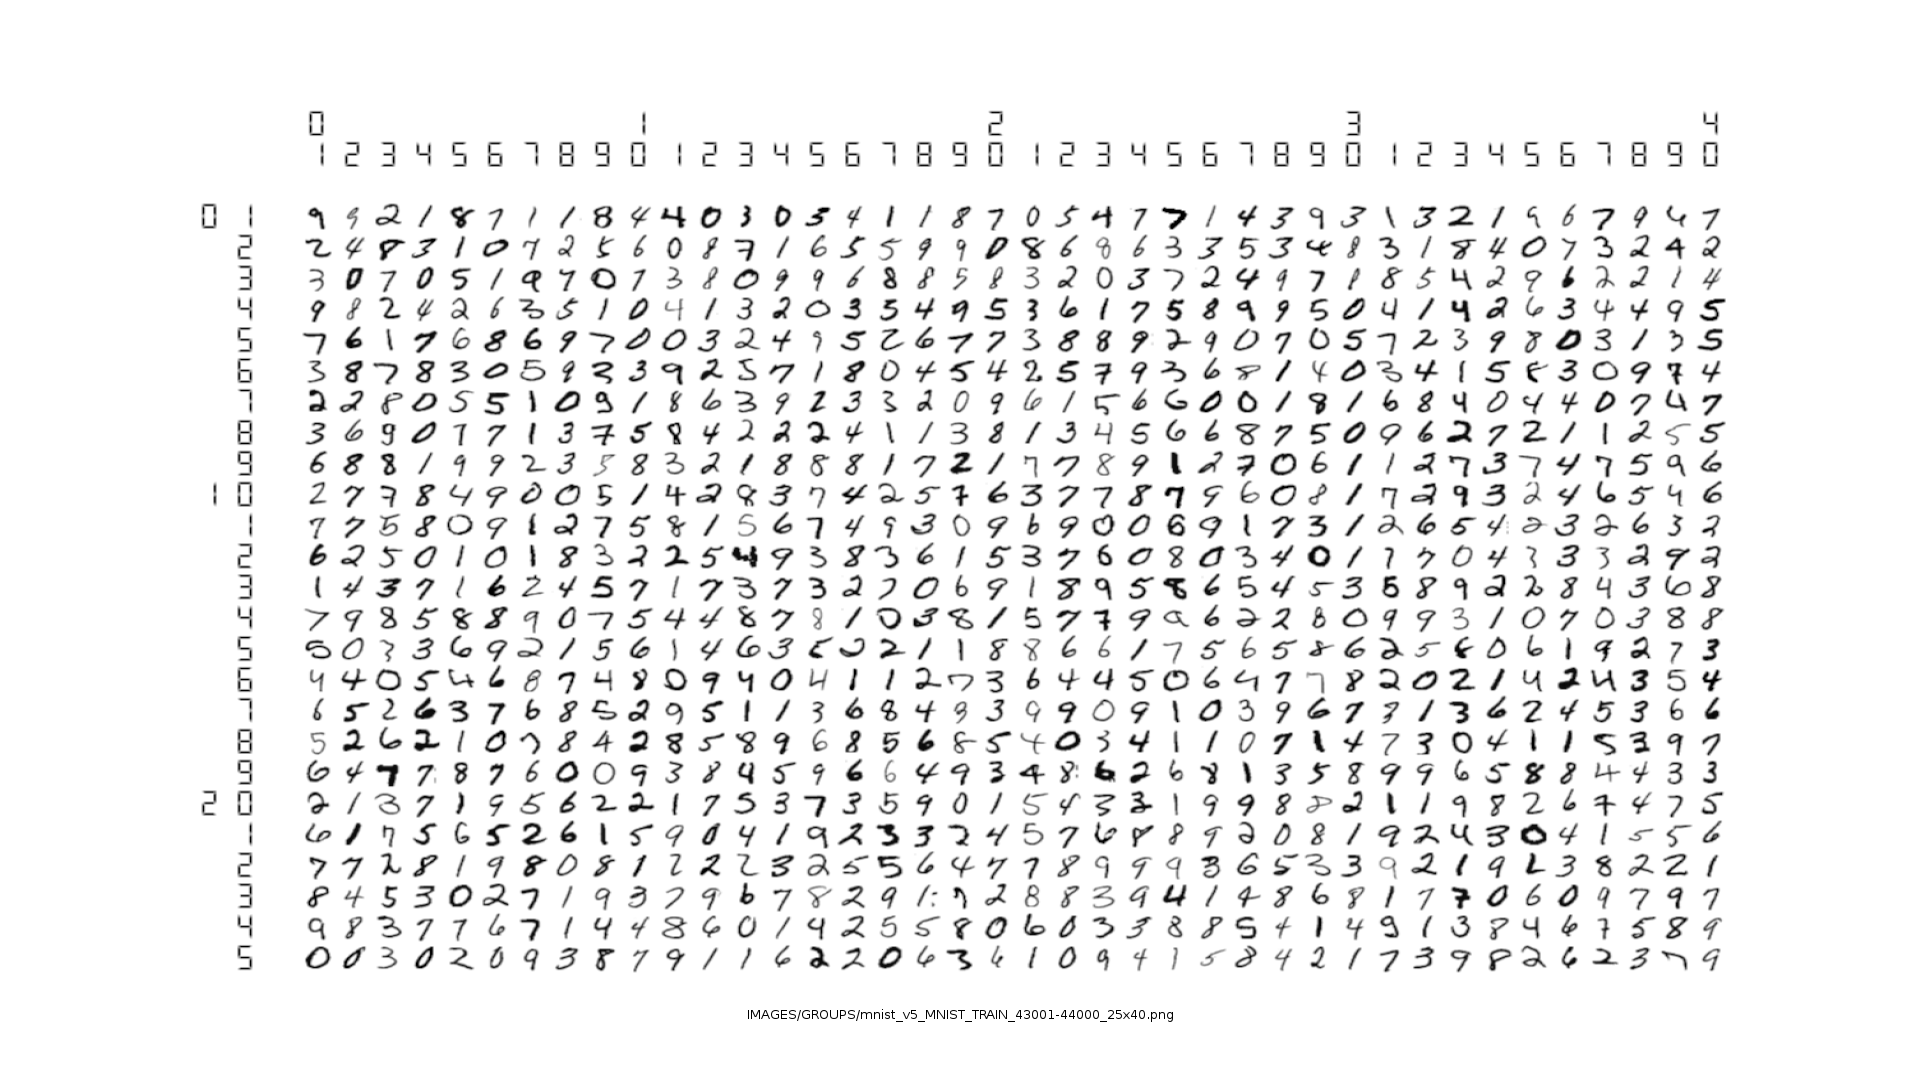 0 1 2 3 4
1 2 3 4 5 6 7 8 9 0 1 2 3 4 5 6 7 8 9 0 1 2 3 4 5 6 7 8 9 0 1 2 3 4 5 6 7 8 9 0
0 1 9 9 2 1 8 7 1 1 8 4 4 0 3 0 5 4 1 1 8 7 0 5 4 7 7 1 4 3 9 3 1 3 2 1 9 6 7 9 4 7
2 2 4 8 3 1 0 7 2 5 6 0 8 7 1 6 5 5 9 9 0 8 6 8 6 3 3 5 3 4 8 3 1 8 4 0 7 3 2 4 2
3 3 0 7 0 5 1 9 7 0 7 3 8 0 9 9 6 8 8 5 8 3 2 0 3 7 2 4 9 7 1 8 5 4 2 9 6 2 2 1 4
4 9 8 2 4 2 6 3 5 1 0 4 1 3 2 0 3 5 4 9 5 3 6 1 7 5 8 9 9 5 0 4 1 4 2 6 3 4 4 9 5
5 7 6 1 7 6 8 6 9 7 0 0 3 2 4 9 5 2 6 7 7 3 8 8 9 2 9 0 7 0 5 7 2 3 9 8 0 3 1 3 5
6 3 8 7 8 3 0 5 9 3 3 9 2 5 7 1 8 0 4 5 4 2 5 7 9 3 6 8 1 4 0 3 4 1 5 8 3 0 9 7 4
7 2 2 8 0 5 5 1 0 9 1 8 6 3 9 2 3 3 2 0 9 6 1 5 6 6 0 0 1 8 1 6 8 4 0 4 4 0 7 4 7
8 3 6 9 0 7 7 1 3 7 5 8 4 2 2 2 4 1 1 3 8 1 3 4 5 6 6 8 7 5 0 9 6 2 7 2 1 1 2 5 5
9 6 8 8 1 9 9 2 3 5 8 3 2 1 8 8 8 1 7 2 1 7 7 8 9 1 2 7 0 6 1 1 2 7 3 7 4 7 5 9 6
1 0 2 7 7 8 4 9 0 0 5 1 4 2 8 3 7 4 2 5 7 6 3 7 7 8 7 9 6 0 8 1 7 2 9 3 2 4 6 5 4 6
1 7 7 5 8 0 9 1 2 7 5 8 1 5 6 7 4 9 3 0 9 6 9 0 0 6 9 1 7 3 1 2 6 5 4 2 3 2 6 3 2
2 6 2 5 0 1 0 1 8 3 2 2 5 4 9 3 8 3 6 1 5 3 7 6 0 8 0 3 4 0 1 7 7 0 4 3 3 3 2 9 2
3 1 4 3 7 1 6 2 4 5 7 1 7 3 7 3 2 7 0 6 9 1 8 9 5 8 6 5 4 5 3 5 8 9 2 2 8 4 3 6 8
4 7 9 8 5 8 8 9 0 7 5 4 4 8 7 8 1 0 3 8 1 5 7 7 9 9 6 2 2 8 0 9 9 3 1 0 7 0 3 8 8
5 5 0 3 3 6 9 2 1 5 6 1 4 6 3 5 2 2 1 1 8 8 6 6 1 7 5 6 5 8 6 2 5 8 0 6 1 9 2 7 3
6 4 4 0 5 4 6 8 7 4 8 0 9 4 0 4 1 1 2 7 3 6 4 4 5 0 6 4 7 7 8 2 0 2 1 4 2 4 3 5 4
7 6 5 2 6 3 7 6 8 5 2 9 5 1 1 3 6 8 4 9 3 9 9 0 9 1 0 3 9 6 7 3 1 3 6 2 4 5 3 6 6
8 5 2 6 2 1 0 7 8 4 2 8 5 8 9 6 8 5 6 8 5 4 0 3 4 1 1 0 7 1 4 7 3 0 4 1 1 5 3 9 7
9 6 4 7 7 8 7 6 0 0 9 3 8 4 5 9 6 6 4 9 3 4 8 6 2 6 8 1 3 5 8 9 9 6 5 8 8 4 4 3 3
2 0 2 1 3 7 1 9 5 6 2 2 1 7 5 3 7 3 5 9 0 1 5 4 3 3 1 9 9 8 8 2 1 1 9 8 2 6 7 4 7 5
1 6 1 7 5 6 5 2 6 1 5 9 0 4 1 9 2 3 3 2 4 5 7 6 8 8 9 2 0 8 1 9 2 4 3 0 4 1 5 5 6
2 7 7 2 8 1 9 8 0 8 1 2 2 2 3 2 5 5 6 4 7 7 8 9 9 9 3 6 5 3 3 9 2 1 9 2 3 8 2 2 1
3 8 4 5 3 0 2 7 1 9 3 7 9 6 7 8 2 9 1 7 2 8 8 3 9 4 1 4 8 6 8 1 7 7 0 6 0 9 7 9 7
4 9 8 3 7 7 6 7 1 4 4 8 6 0 1 4 2 5 5 8 0 6 0 3 3 8 8 5 4 1 4 9 1 3 8 4 6 7 5 8 9
5 0 0 3 0 2 0 9 3 8 7 9 1 1 6 2 2 0 6 3 6 1 0 9 4 1 5 8 4 2 1 7 3 9 8 2 6 2 3 7 9
IMAGES/GROUPS/mnist_v5_MNIST_TRAIN_43001-44000_25x40.png